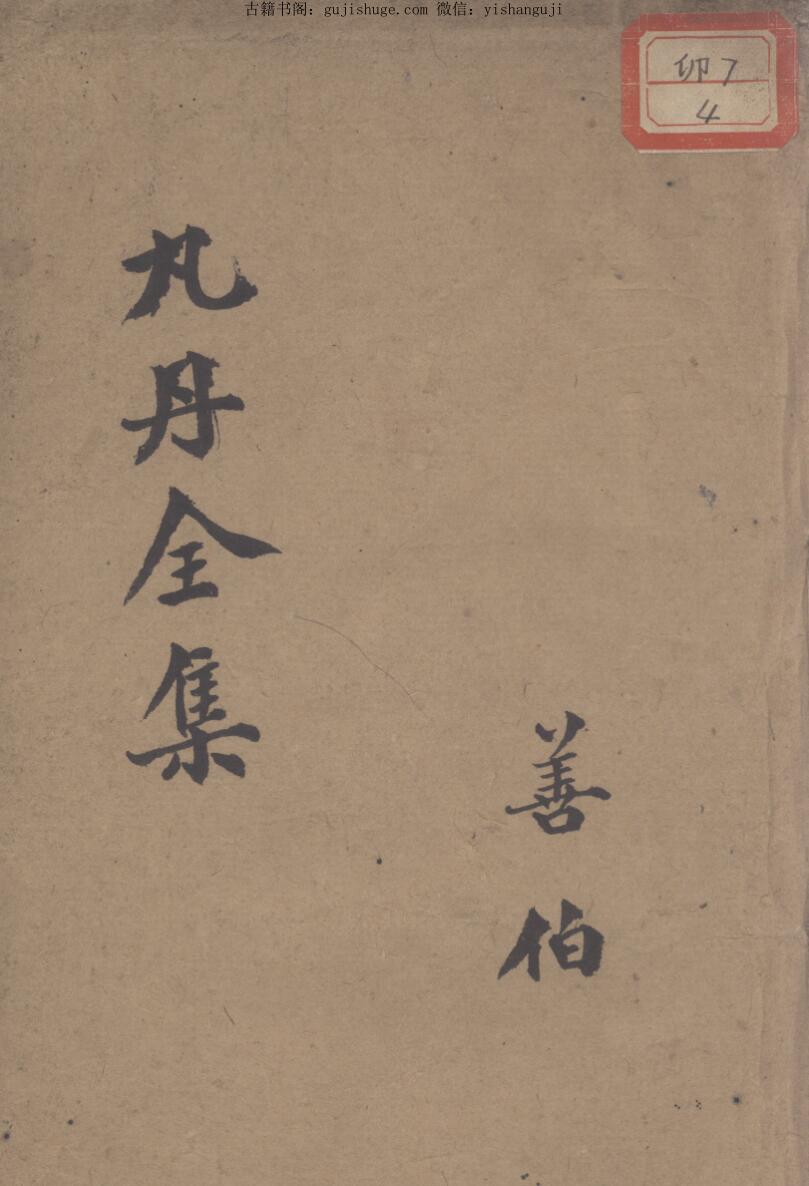 古籍书阁：gujishuge.com 微信：yishanguji
卯7
4
丸丹全集
善伯